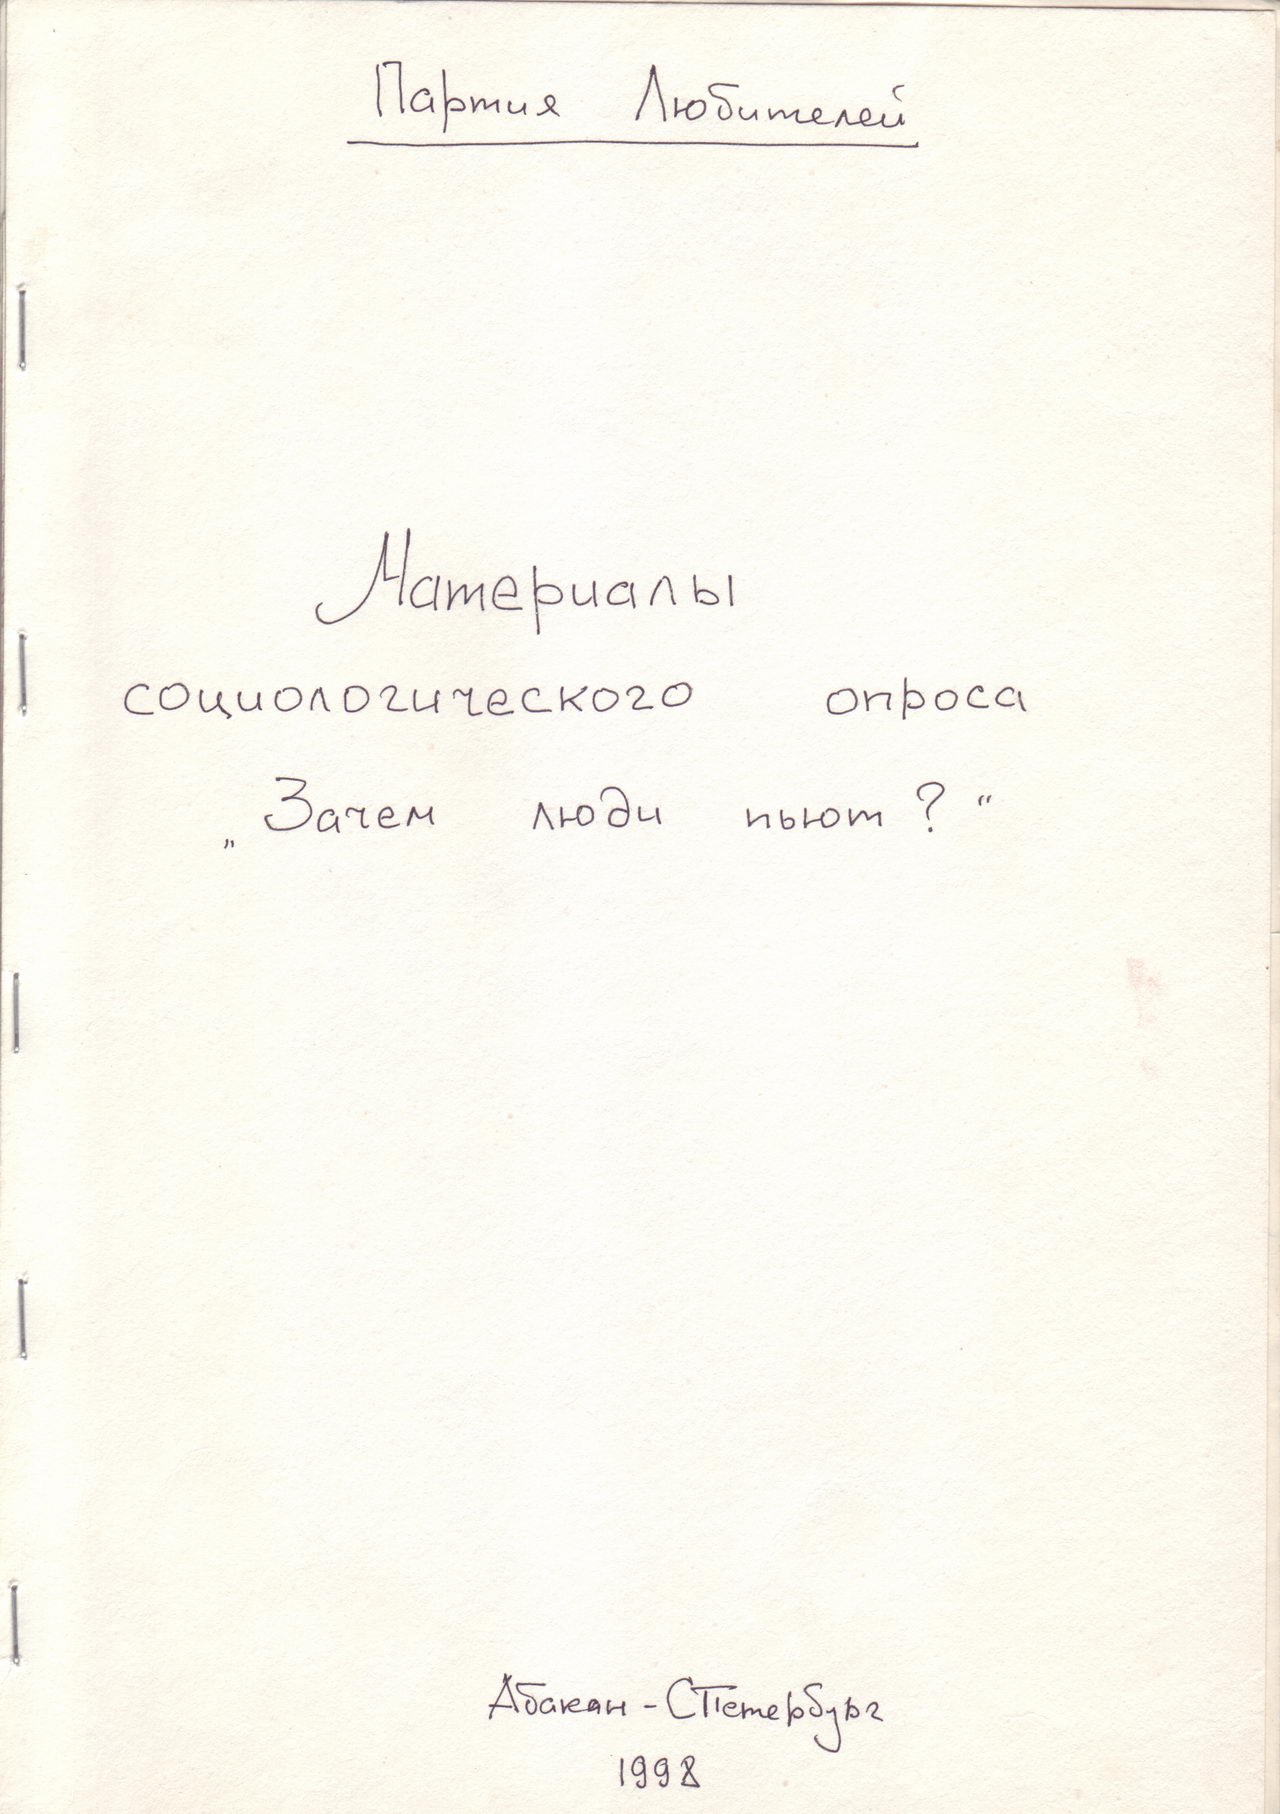 Партия Любителей
Материалы
социологического опроса
„Зачем люди пьют?“
Абакан - СПетербург
1998